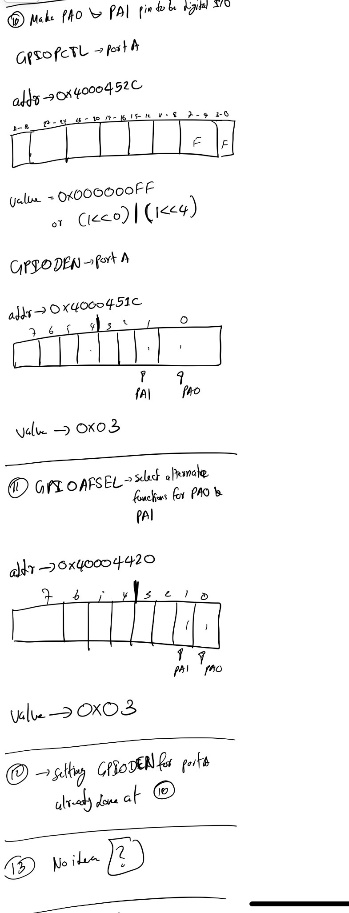 ⑩ Make PA0 & PA1 pin to be digital I/O
GPIOPCTL → port A
addr → 0x4000452C
F F
value = 0x000000FF
or (1<<0) | (1<<4)
GPIODEN → port A
addr → 0x4000451C
7 6 5 4 3 2 1 0
1 1
PA1 PA0
value → 0x03
⑪ GPIOAFSEL → select alternate
functions for PA0 &
PA1
addr → 0x40004420
7 6 5 4 3 2 1 0
1 1
PA1 PA0
value → 0x03
⑫ → setting GPIODEN for portA
already done at ⑩
⑬ No idea ?